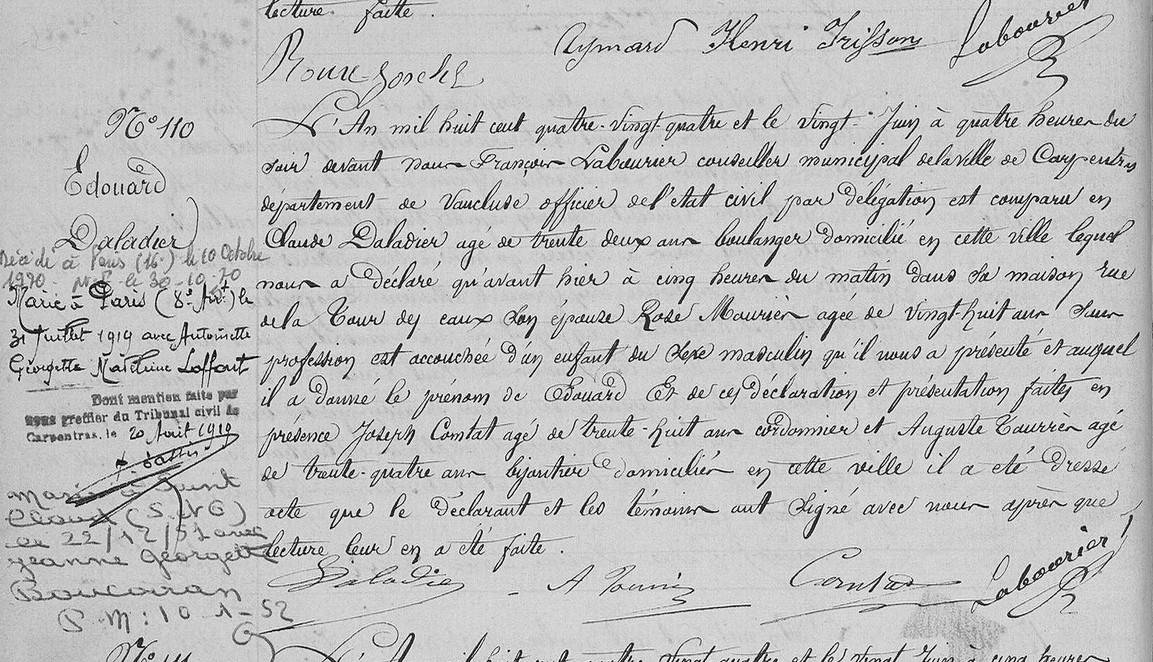 lecture faite.
Aymard Henri Trisson Labourier
Roux Joseph
N° 110
Edouard
Daladier
Décédé à Paris (16e) le 10 Octobre
1970 le 30-10-70
Marié à Paris (8e Arrt) le
31 Juillet 1919 avec Antoinette
Georgette Madeleine Laffont
Dont mention faite par
nous greffier du Tribunal civil de
Carpentras, le 20 Août 1919
Marié à Saint
Claud (S.&G)
le 22/12/51 avec
Jeanne Georgette
Boucoiran
P. M: 10-1-52
L'An mil huit cent quatre-vingt-quatre et le vingt Juin à quatre heures du
soir devant nous François Labourier conseiller municipal de la ville de Carpentras
departement de Vaucluse officier de l'etat civil par délégation est comparu en
Claude Daladier agé de trente deux ans boulanger domicilié en cette ville lequel
nous a déclaré qu'avant hier à cinq heures du matin dans sa maison rue
de la Tour des eaux son épouse Rose Mourier agée de vingt-huit ans sans
profession est accouchée d'un enfant du sexe masculin qu'il nous a présenté et auquel
il a donné le prénom de Edouard Et de ces déclaration et présentation faites en
presence Joseph Comtat agé de trente-huit ans cordonnier et Auguste Taurrin agé
de trente-quatre ans bijoutier domiciliés en cette ville il a été dressé
acte que le déclarant et les témoins ont signé avec nous après que
lecture leur en a été faite.
Daladier A Comtat Labourier
N° 111
L'An mil huit cent quatre vingt quatre et le vingt Juin à cinq heures